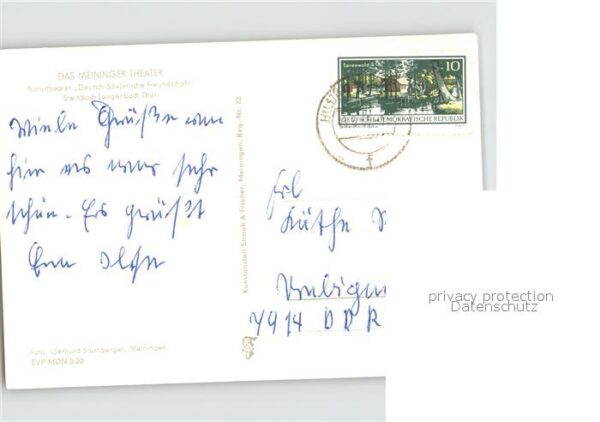 DAS MEININGER THEATER
Naturtheater „Deutsch-Sowjetische Freundschaft"
Steinbach-Langenbach Thür.
Viele Grüße von
hier es war sehr
schön. Es grüßt
Ilse
Foto: Gerhard Sternberger, Meiningen
EVP MDN 0,20
Kunstanstalt Straub & Fischer, Meiningen, Reg.-Nr. 22
Spreewald
10
DEUTSCHE DEMOKRATISCHE REPUBLIK
Frl
Käthe
7914 DDR
privacy protection
Datenschutz